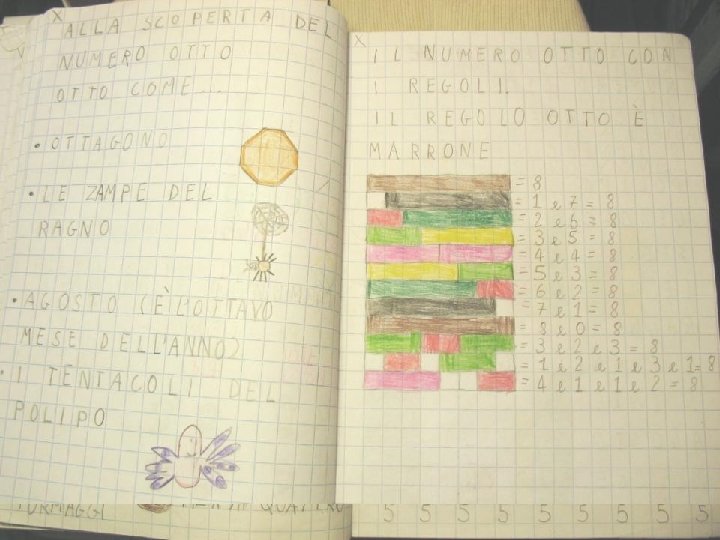 X
ALLA SCOPERTA DEL
NUMERO OTTO
OTTO COME...
• OTTAGONO
• LE ZAMPE DEL
RAGNO
• AGOSTO (È L'OTTAVO
MESE DELL'ANNO)
• I TENTACOLI DEL
POLIPO
FORMAGGI
QUATTRO
X
IL NUMERO OTTO CON
I REGOLI.
IL REGOLO OTTO È
MARRONE
= 8
= 1 e 7 = 8
= 2 e 6 = 8
= 3 e 5 = 8
= 4 e 4 = 8
= 5 e 3 = 8
= 6 e 2 = 8
= 7 e 1 = 8
= 8 e 0 = 8
= 3 e 2 e 3 = 8
= 1 e 2 e 1 e 3 e 1 = 8
= 4 e 1 e 1 e 2 = 8
5 5 5 5 5 5 5 5 5